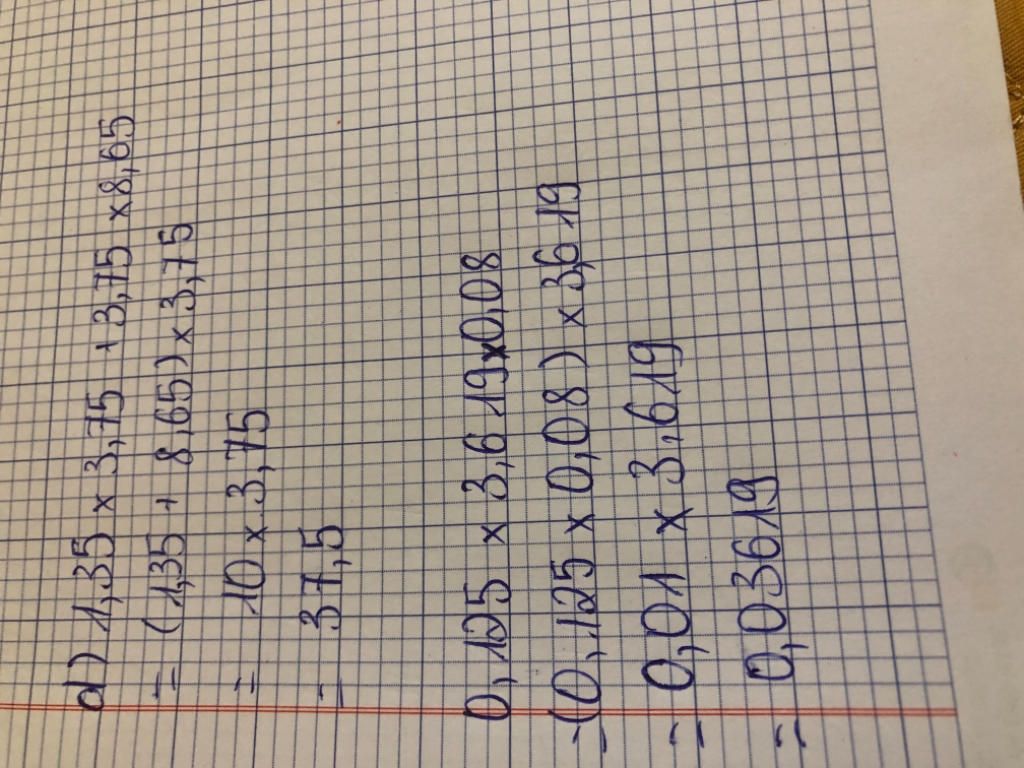 d) 1,35 x 3,75 + 3,75 x 8,65
= (1,35 + 8,65) x 3,75
= 10 x 3,75
= 37,5
0,125 x 3,619 x 0,08
=(0,125 x 0,08) x 3,619
= 0,01 x 3,619
= 0,03619